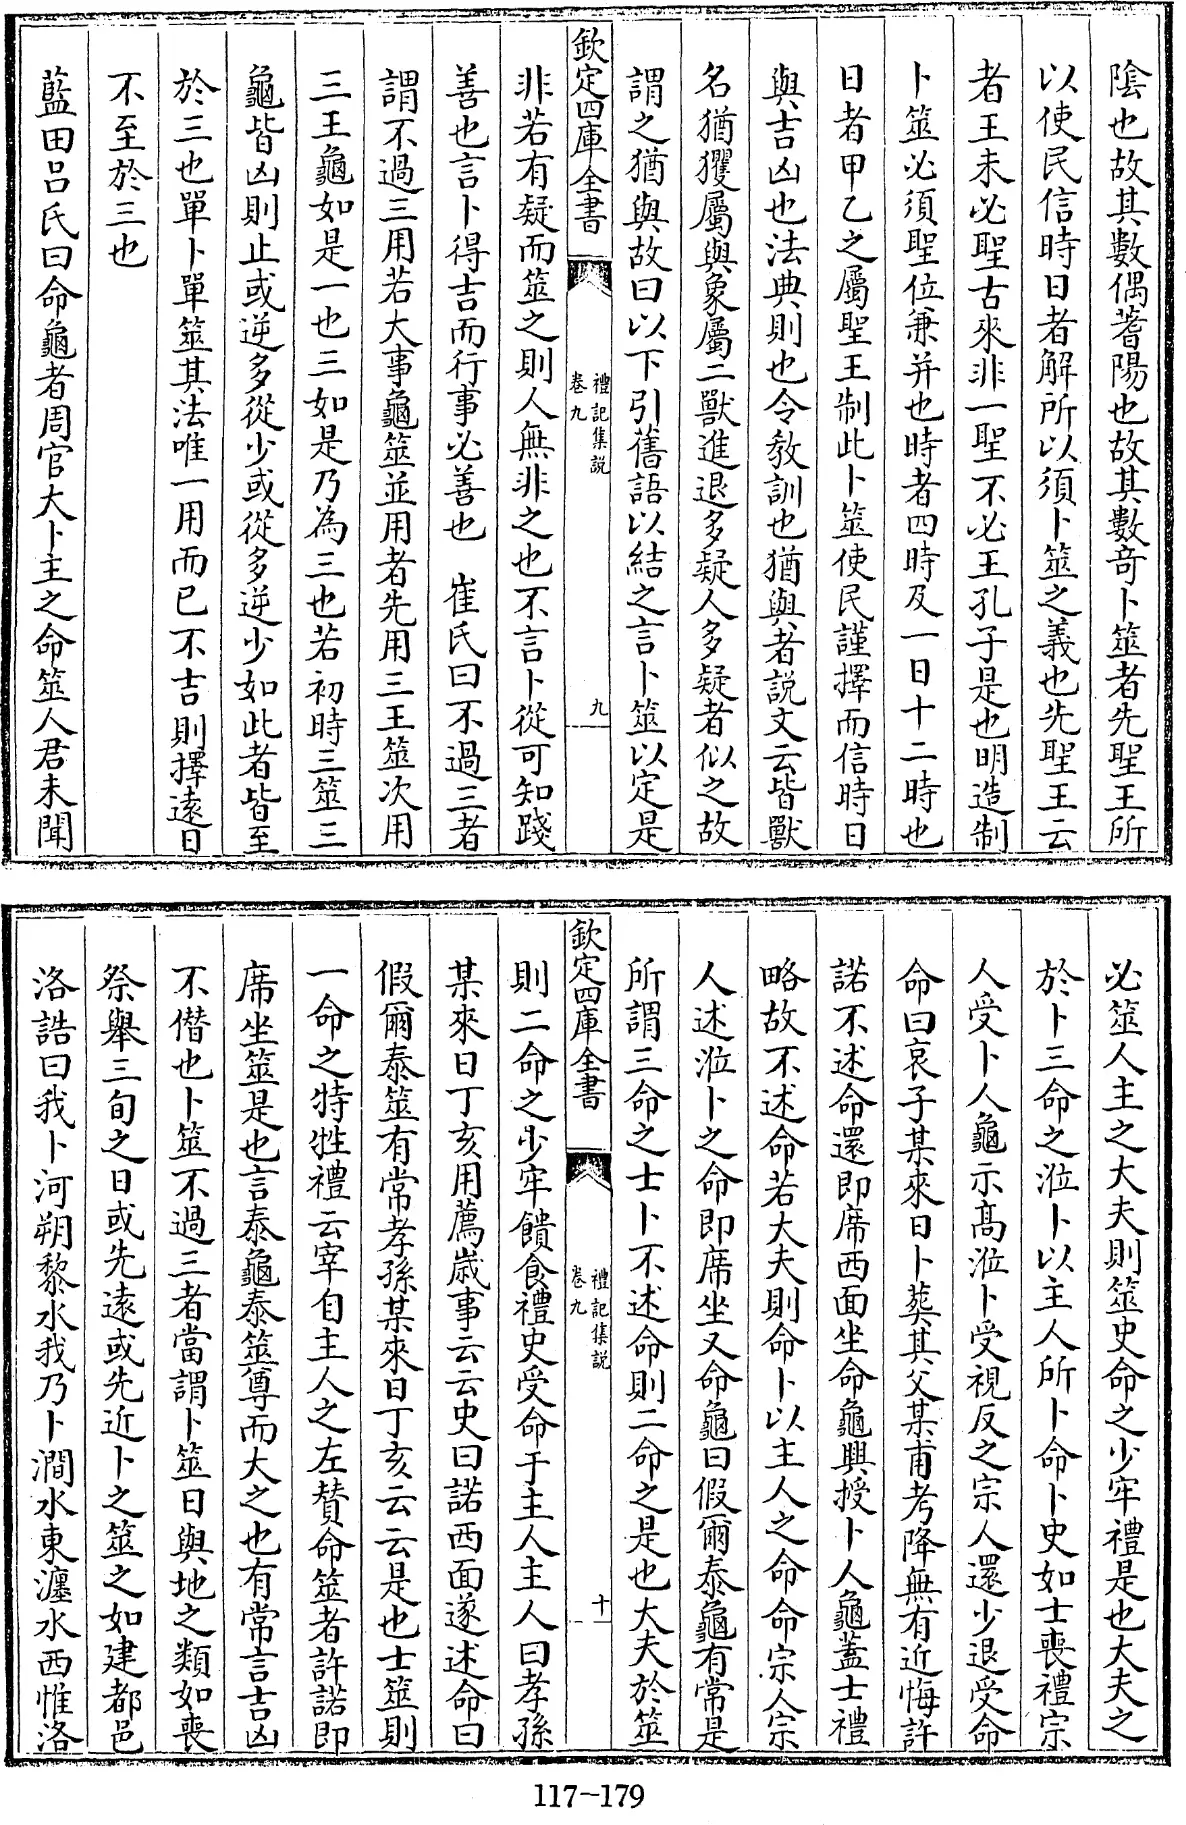 陰也故其數偶蓍陽也故其數奇卜筮者先聖王所
以使民信時日者解所以須卜筮之義也先聖王云
者王未必聖古來非一聖不必王孔子是也明造制
卜筮必須聖位兼并也時者四時及一日十二時也
日者甲乙之屬聖王制此卜筮使民謹擇而信時日
與吉凶也法典則也令教訓也猶與者説文云皆獸
名猶玃屬與象屬二獸進退多疑人多疑者似之故
謂之猶與故曰以下引舊語以結之言卜筮以定是
欽定四庫全書
禮記集説
卷九
九
非若有疑而筮之則人無非之也不言卜從可知踐
善也言卜得吉而行事必善也 崔氏曰不過三者
謂不過三用若大事龜筮並用者先用三王筮次用
三王龜如是一也三如是乃為三也若初時三筮三
龜皆凶則止或逆多從少或從多逆少如此者皆至
於三也單卜單筮其法唯一用而已不吉則擇遠日
不至於三也
藍田呂氏曰命龜者周官大卜主之命筮人君未聞
必筮人主之大夫則筮史命之少牢禮是也大夫之
於卜三命之涖卜以主人所卜命卜史如士喪禮宗
人受卜人龜示髙涖卜受視反之宗人還少退受命
命曰哀子某來日卜葬其父某甫考降無有近悔許
諾不述命還即席西面坐命龜興授卜人龜蓋士禮
略故不述命若大夫則命卜以主人之命命宗人宗
人述涖卜之命即席坐又命龜曰假爾泰龜有常是
所謂三命之士卜不述命則二命之是也大夫於筮
欽定四庫全書
禮記集説
卷九
十
則二命之少牢饋食禮史受命于主人主人曰孝孫
某來日丁亥用薦歲事云云史曰諾西面遂述命曰
假爾泰筮有常孝孫某來日丁亥云云是也士筮則
一命之特牲禮云宰自主人之左賛命筮者許諾即
席坐筮是也言泰龜泰筮尊而大之也有常言吉凶
不僭也卜筮不過三者當謂卜筮日與地之類如喪
祭舉三旬之日或先遠或先近卜之筮之如建都邑
洛誥曰我卜河朔黎水我乃卜澗水東瀍水西惟洛
117-179